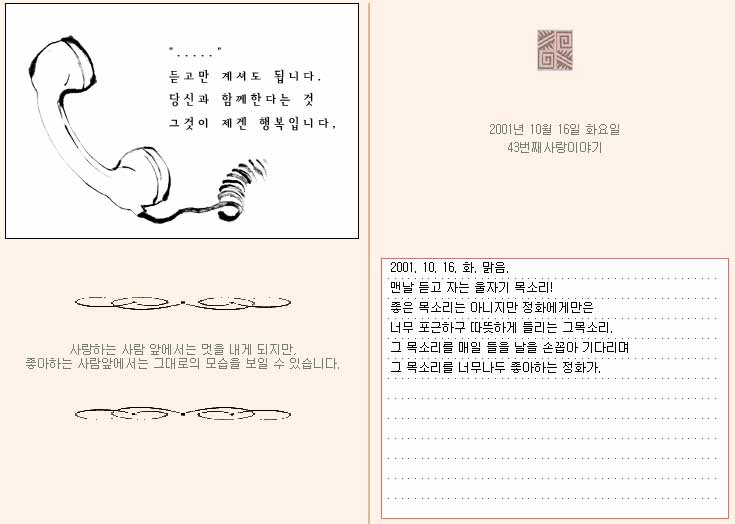 "....."
듣고만 계셔도 됩니다.
당신과 함께한다는 것
그것이 제겐 행복입니다,
사랑하는 사람 앞에서는 멋을 내게 되지만,
좋아하는 사람앞에서는 그대로의 모습을 보일 수 있습니다.
2001년 10월 16일 화요일
43번째사랑이야기
2001. 10. 16. 화. 맑음.
맨날 듣고 자는 울자기 목소리!
좋은 목소리는 아니지만 정화에게만은
너무 포근하구 따뜻하게 들리는 그목소리.
그 목소리를 매일 들을 날을 손꼽아 기다리며
그 목소리를 너무나두 좋아하는 정화가.